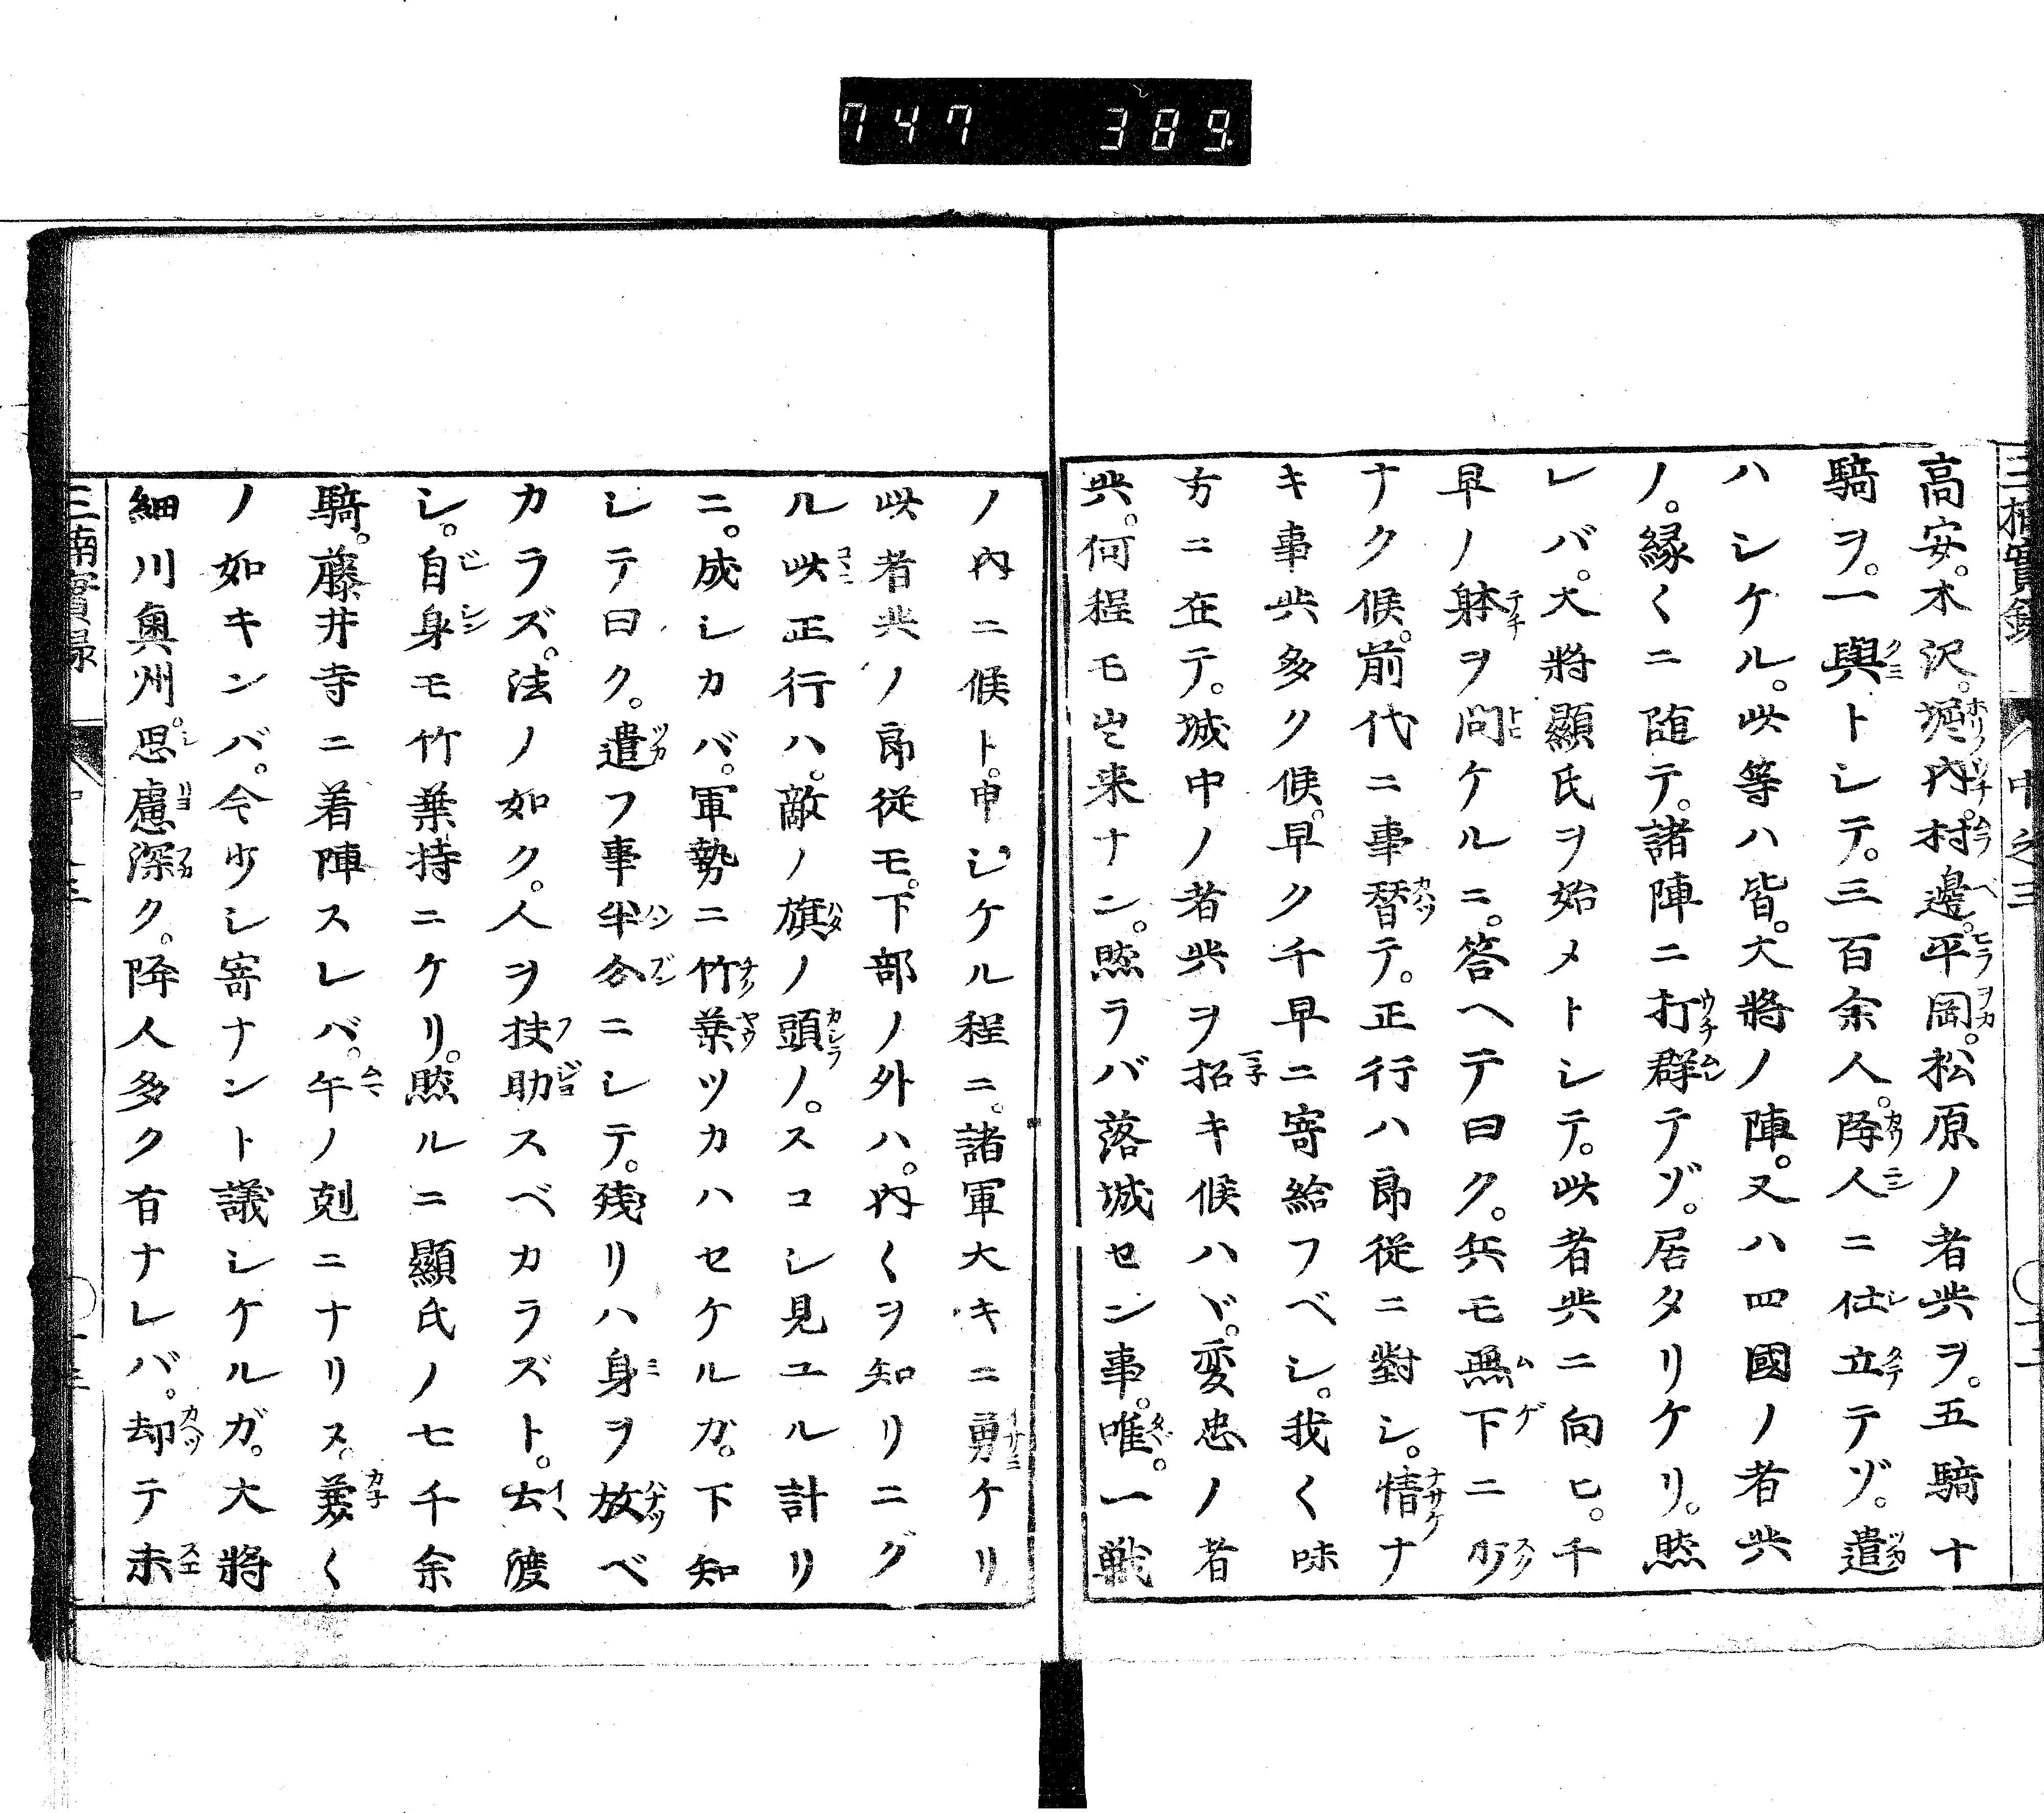 747 389
三楠實録 中之三
高安。木沢。堀内。村邊。平岡。松原ノ者共ヲ。五騎十
騎ヲ。一與トシテ。三百余人。降人ニ仕立テヅ。遣
ハシケル。此等ハ皆。大將ノ陣。又ハ四國ノ者共
ノ。縁〱ニ随テ。諸陣ニ打群テゾ。居タリケリ。然
レバ。大將顯氏ヲ始メトシテ。此者共ニ向ヒ。千
早ノ躰ヲ問ケルニ。答ヘテ曰ク。兵モ無下ニ
ナク候。前代ニ事替テ。正行ハ郎従ニ對シ。情ナ
キ事共多ク候。早ク千早ニ寄給フベシ。我〱味
方ニ在テ。城中ノ者共ヲ招キ候ハヾ。変忠ノ者
共。何程モ出来ナン。然ラバ落城セン事。唯。一戦
ノ内ニ候ト。申シケル程ニ。諸軍大キニ勇ケリ
此者共ノ郎従モ。下部ノ外ハ。内〱ヲ知リニグ
ル此正行ハ。敵ノ旗ノ頭ノ。スコシ見ユル計リ
ニ。成シカバ。軍勢ニ竹葉ツカハセケルガ。下知
シテ曰ク。遣フ事半分ニシテ。残リハ身ヲ放ベ
カラズ。法ノ如ク。人ヲ扶助スベカラズト。云渡
シ。自身モ竹葉持ニケリ。然ルニ顯氏ノ七千余
騎。藤井寺ニ着陣スレバ。午ノ剋ニナリヌ。兼〱
ノ如キンバ。今少シ寄ナント議シケルガ。大將
細川奥州。思慮深ク。降人多ク有ナレバ。却テ未
三楠實録